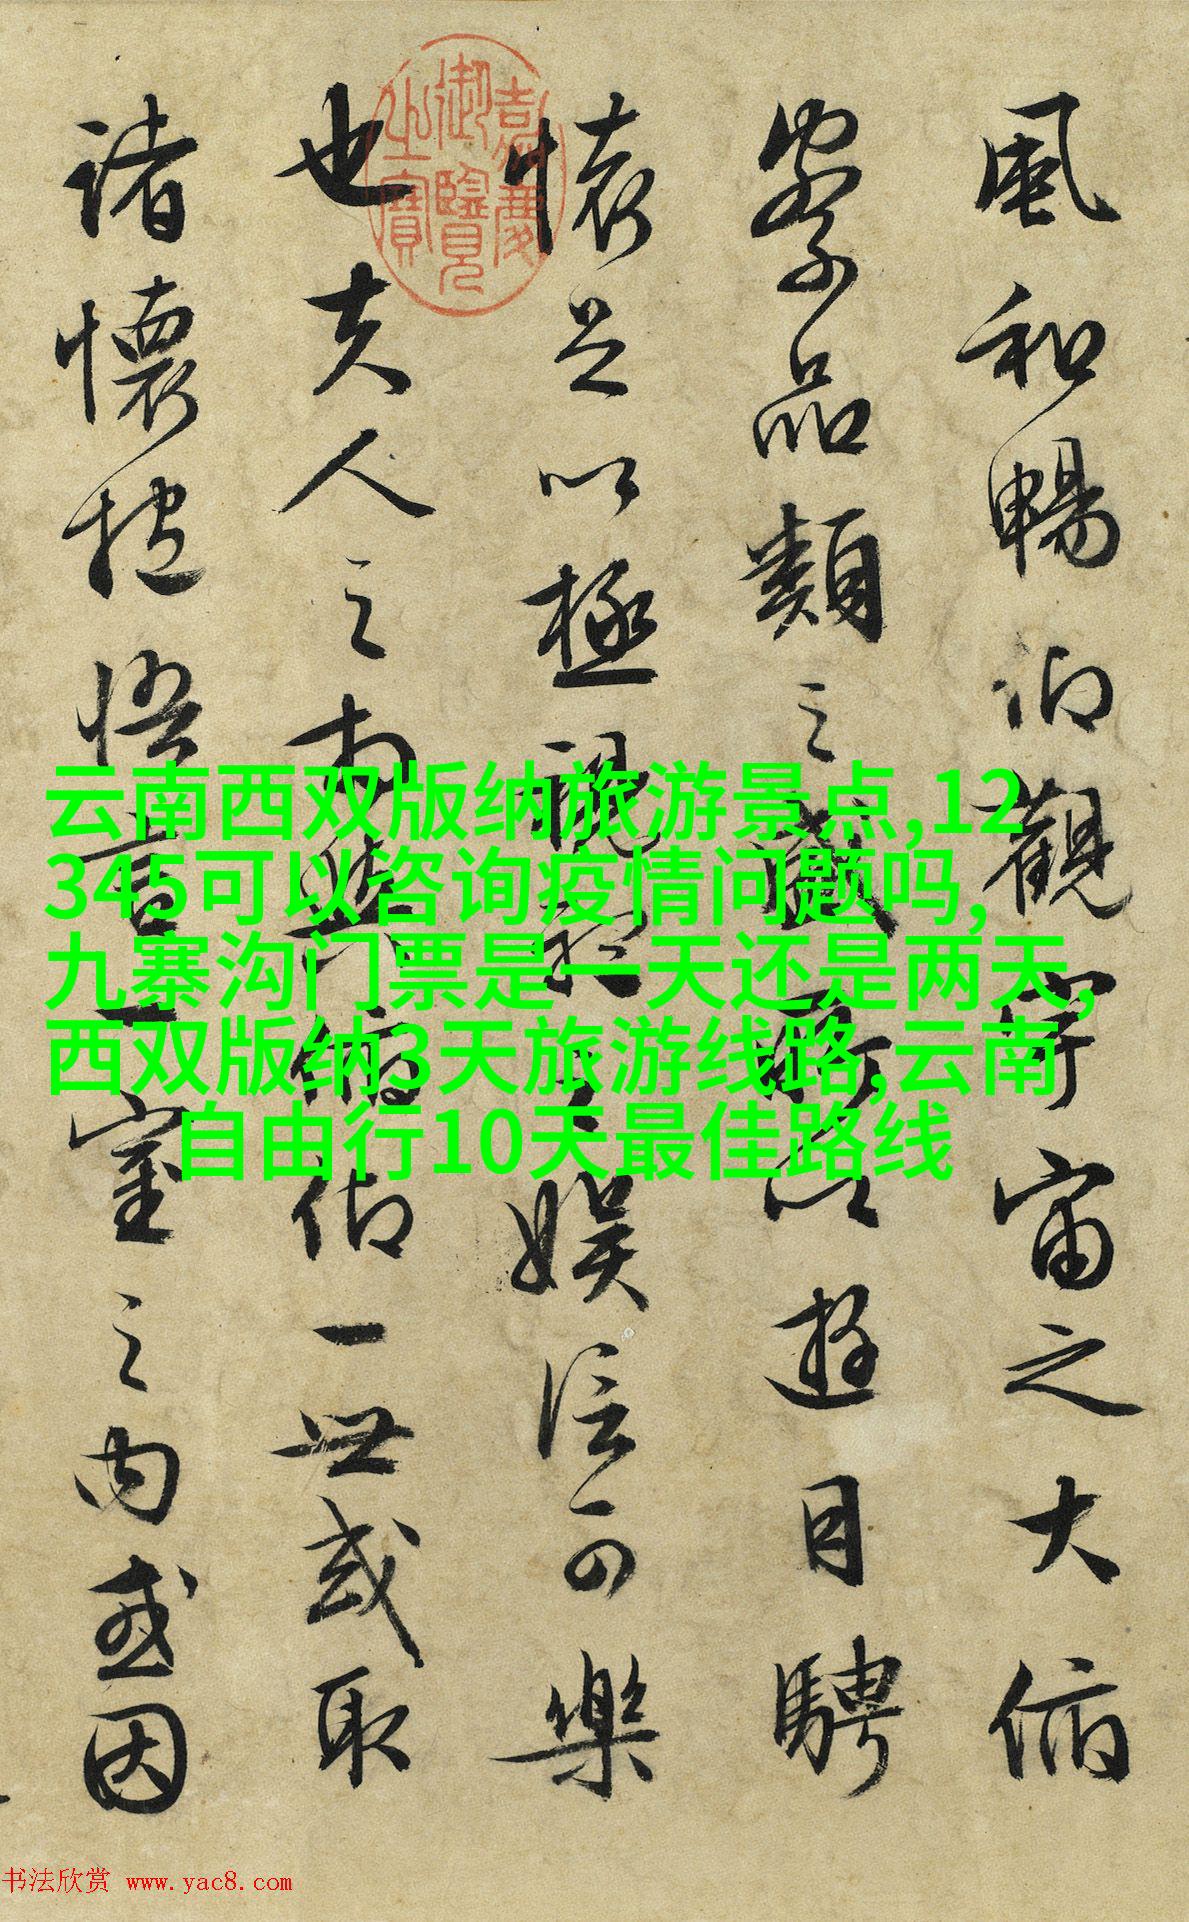 風和暢仰觀宇宙之大俯
察品類之盛所以遊目騁
懷足以極視聽之娛信可樂
也夫人之相與俯仰一世或取
諸懷抱悟言一室之內或因
嘉慶
御覽
之寶
云南西双版纳旅游景点,12
345可以咨询疫情问题吗,
九寨沟门票是一天还是两天,
西双版纳3天旅游线路,云南
自由行10天最佳路线
书法欣赏 www.yac8.com